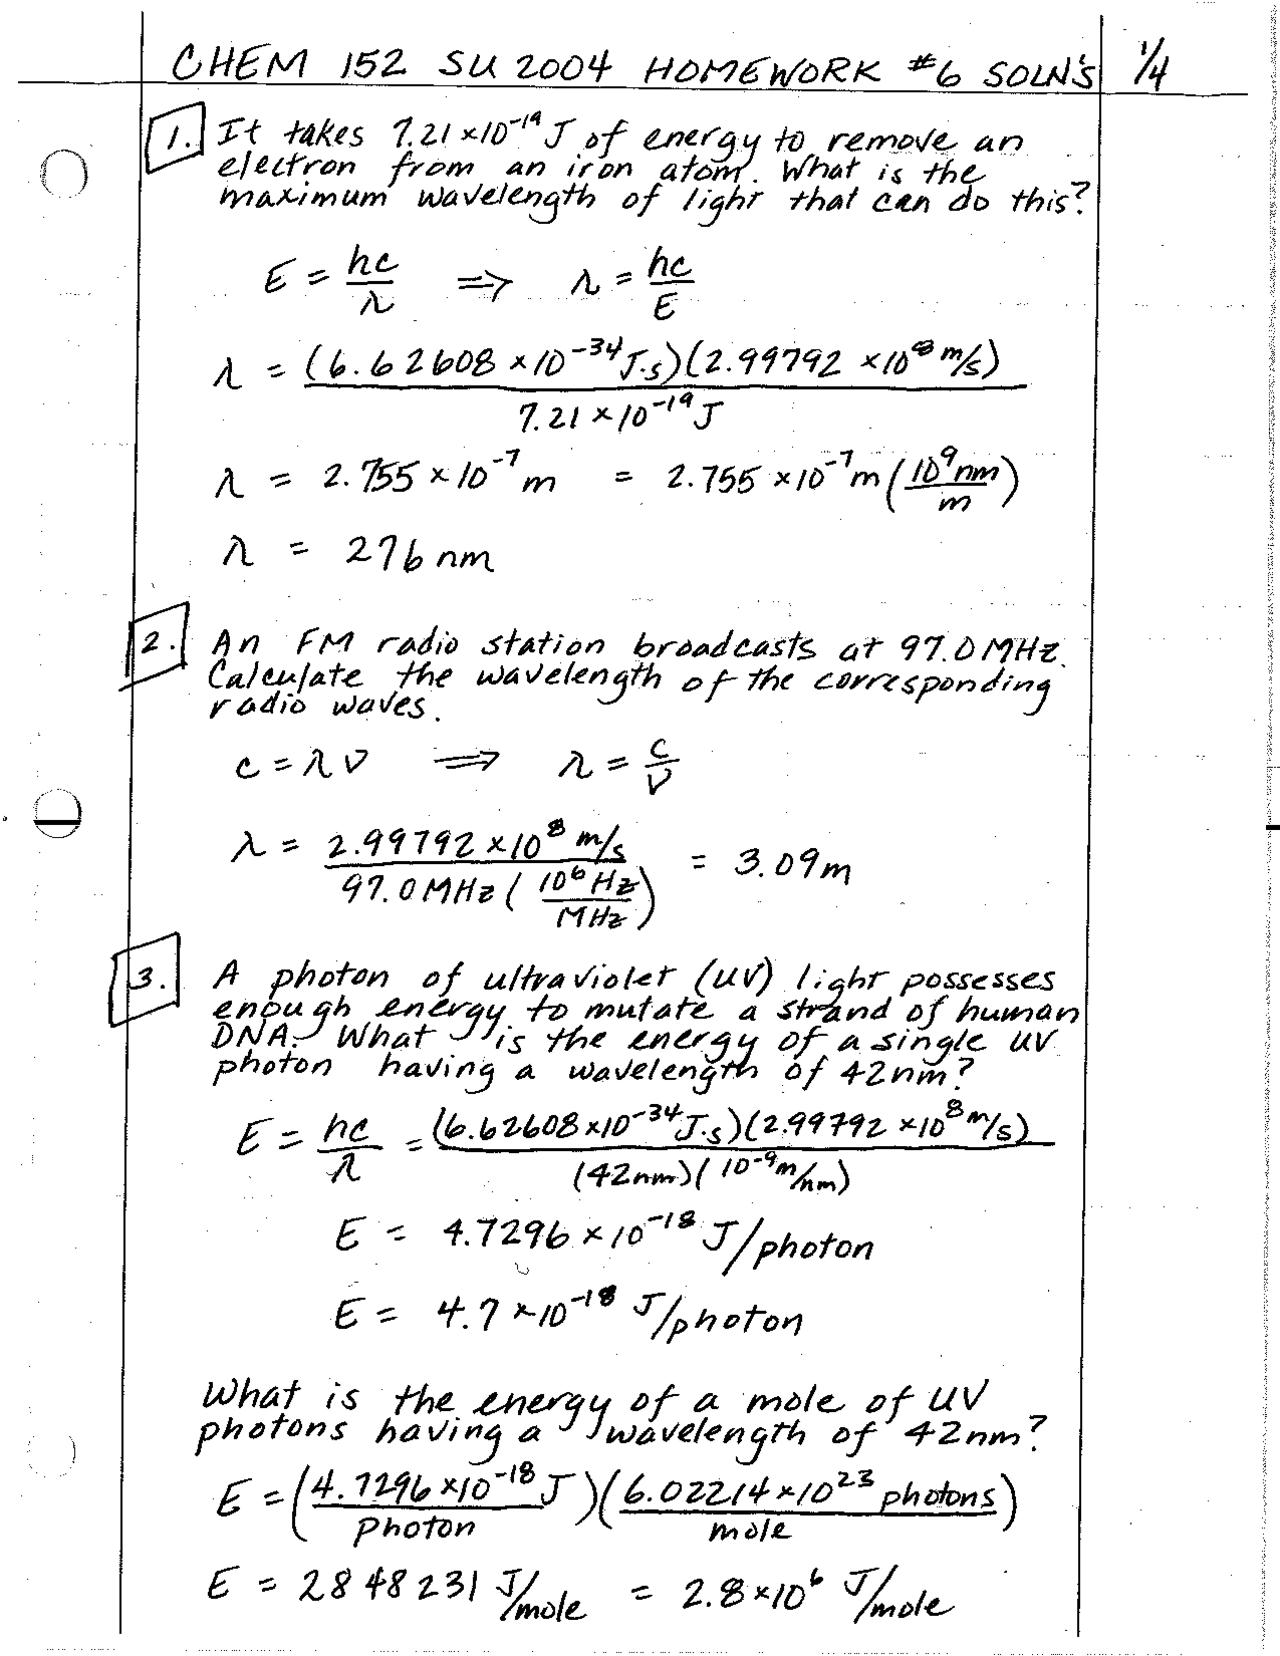 CHEM 152 SU 2004 HOMEWORK #6 SOLN'S 1/4
1. It takes 7.21 ×10⁻¹⁹ J of energy to remove an
electron from an iron atom. What is the
maximum wavelength of light that can do this?
E = hc/λ ⇒ λ = hc/E
λ = (6.62608 ×10⁻³⁴ J·s)(2.99792 ×10⁸ m/s) / 7.21 ×10⁻¹⁹ J
λ = 2.755 ×10⁻⁷ m = 2.755 ×10⁻⁷ m (10⁹ nm/m)
λ = 276 nm
2. An FM radio station broadcasts at 97.0 MHz.
Calculate the wavelength of the corresponding
radio waves.
c = λν ⇒ λ = c/ν
λ = 2.99792 ×10⁸ m/s / 97.0 MHz (10⁶ Hz/MHz) = 3.09 m
3. A photon of ultraviolet (UV) light possesses
enough energy to mutate a strand of human
DNA. What is the energy of a single UV
photon having a wavelength of 42nm?
E = hc/λ = (6.62608 ×10⁻³⁴ J·s)(2.99792 ×10⁸ m/s) / (42nm)(10⁻⁹ m/nm)
E = 4.7296 ×10⁻¹⁸ J/photon
E = 4.7 ×10⁻¹⁸ J/photon
What is the energy of a mole of UV
photons having a wavelength of 42nm?
E = (4.7296 ×10⁻¹⁸ J/photon)(6.02214 ×10²³ photons/mole)
E = 2848231 J/mole = 2.8 ×10⁶ J/mole